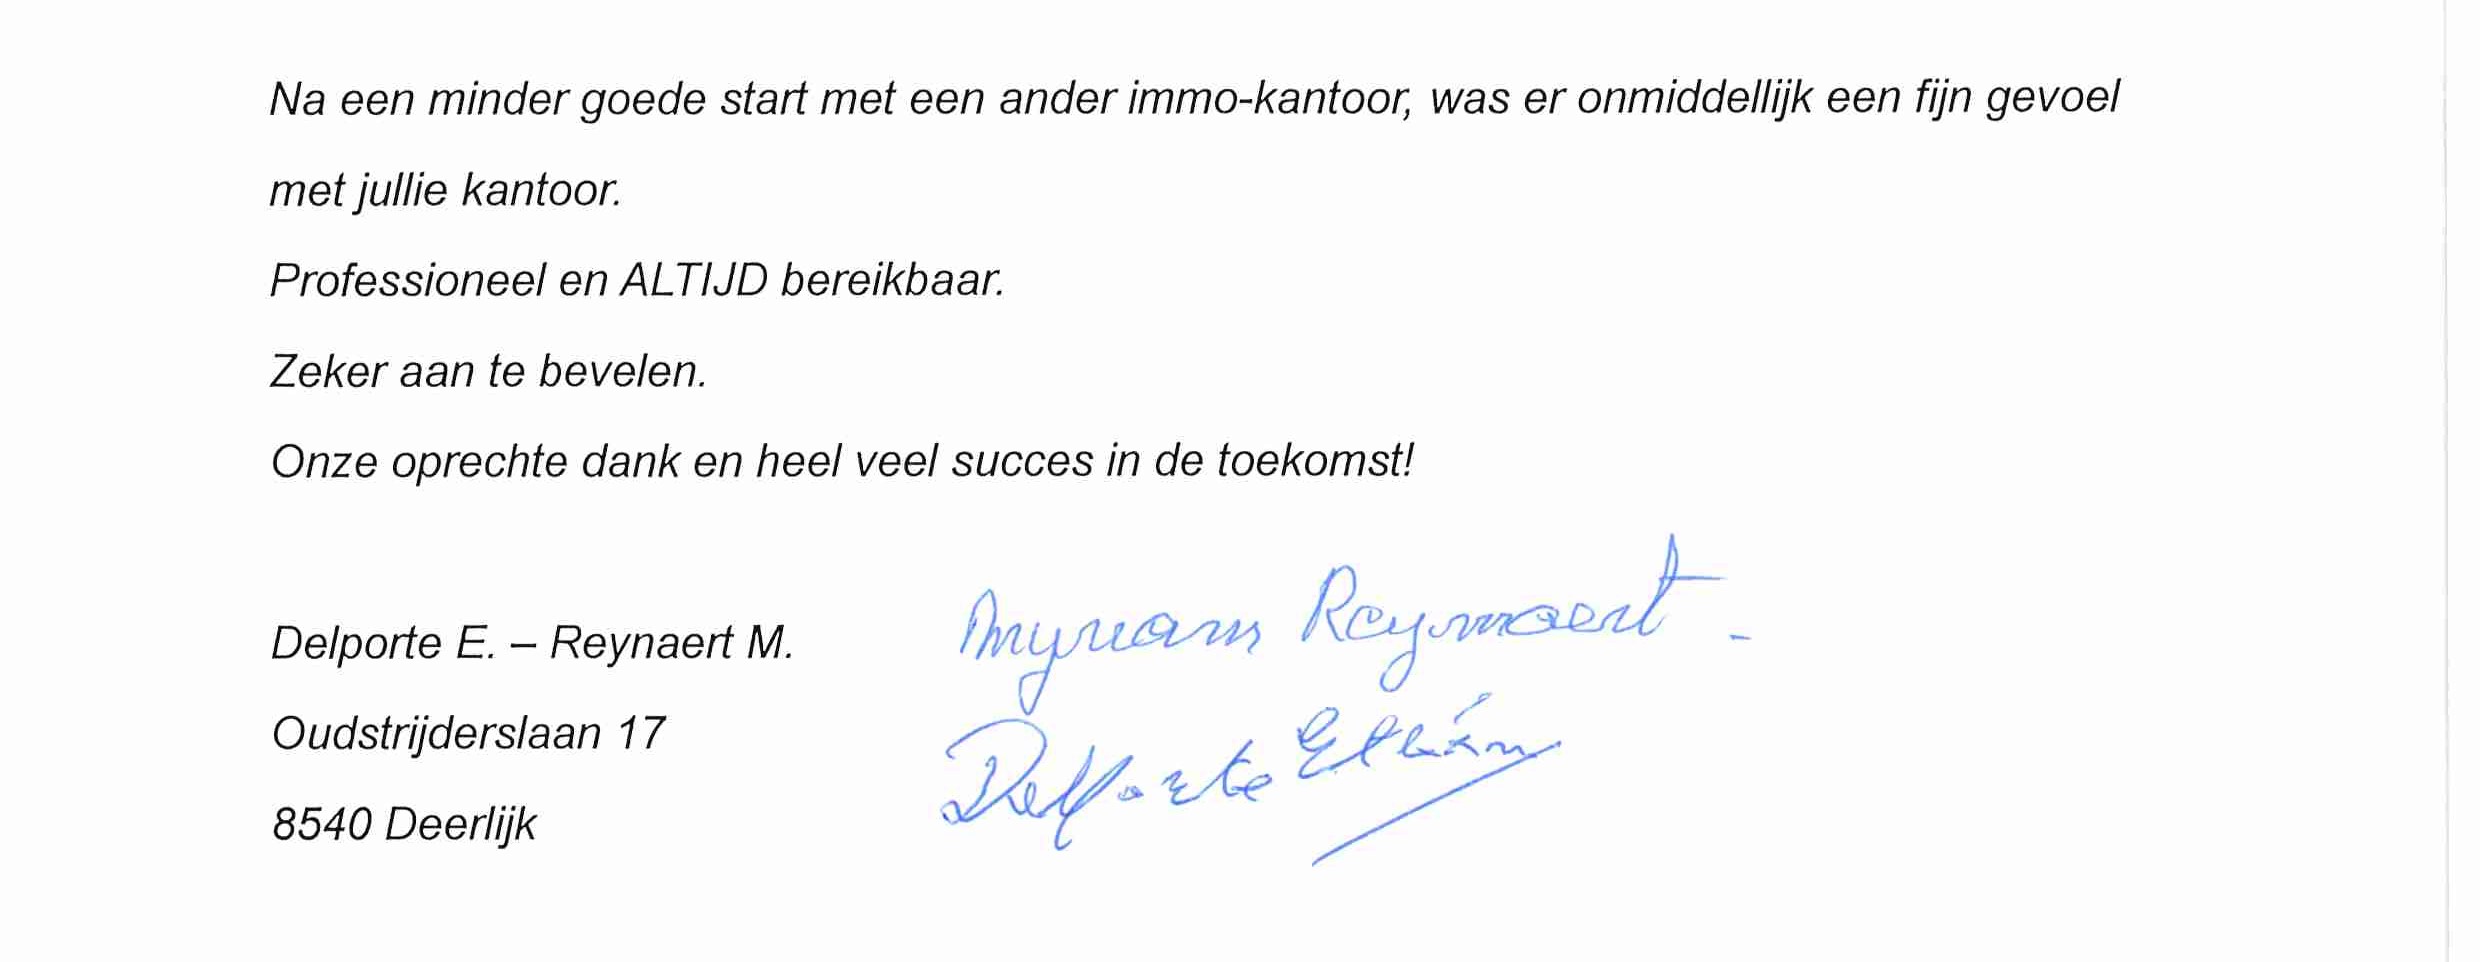 Na een minder goede start met een ander immo-kantoor, was er onmiddellijk een fijn gevoel
met jullie kantoor.
Professioneel en ALTIJD bereikbaar.
Zeker aan te bevelen.
Onze oprechte dank en heel veel succes in de toekomst!
Delporte E. – Reynaert M.
Myriam Reynaert -
Oudstrijderslaan 17
Delporte
8540 Deerlijk